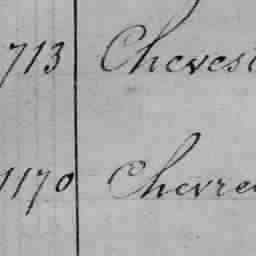 713 Chevest
1170 Chevre